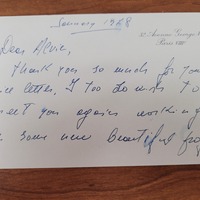 January 1968
32 Avenue George V
Paris VIIIe
Dear Alvie,
Thank you so much for your
letter. I too do wish to
meet you again working
some new beautiful